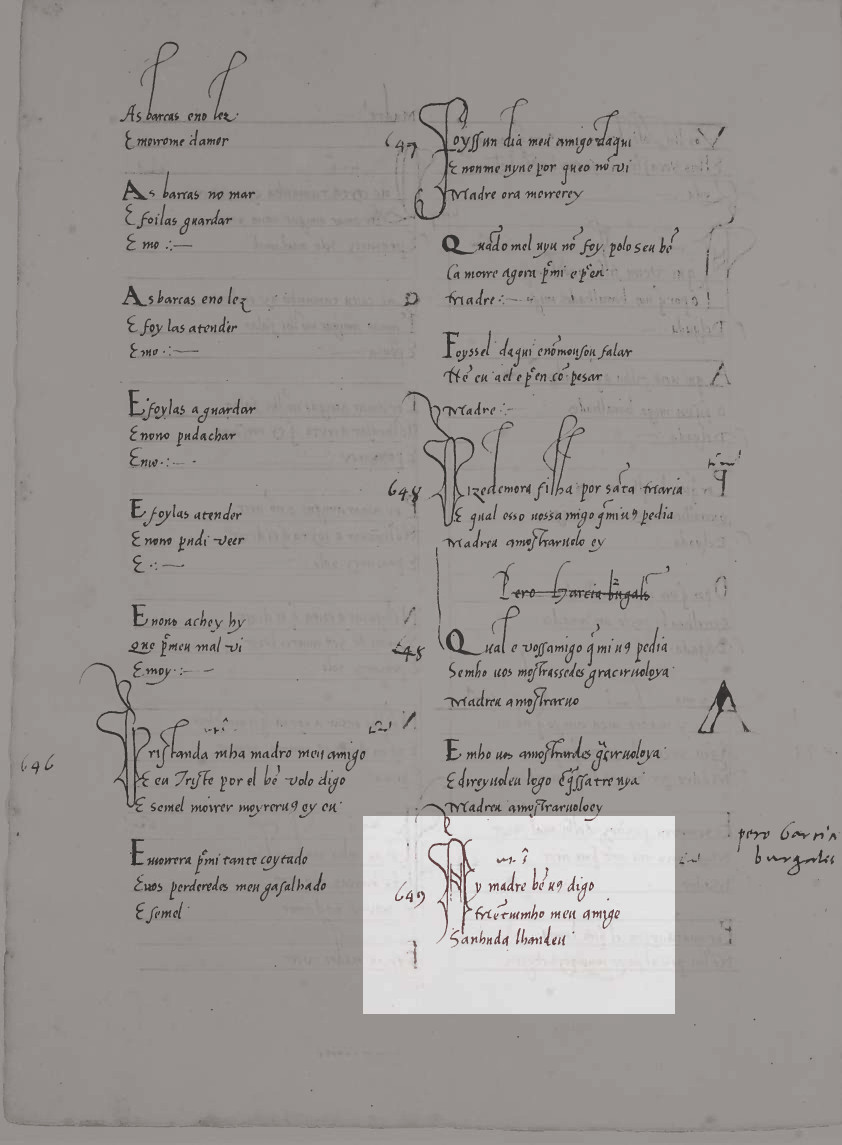 As barcas eno lez
E moirome damor
As barcas no mar
E foilas guardar
E mo
As barcas eno lez
E foy las atender
E mo
E foylas aguardar
E nono pudachar
E mo
E foylas atender
E nono pudi veer
E
E nono achey hy
Que pͤmeu mal vi
E moy
646
Tristanda mha madro meu amigo
E eu Triste por el bē volo digo
E semel moirer moyrerug ey eu
E morrera pͤmi tante coytado
E vos perderedes meu gasalhado
E semel
647
Foyssun dia meu amigo daqui
E nonme vyne por queo nō vi
Madre ora morrerey
Quādo mel vyu nō foy polo seu bē
Ca morre agora pͤmi e pͤen
Madre
Foyssel daqui enō mousou falar
Nē eu ael e pͤen cō pesar
Madre
648
Dizedemora filha por sāta Maria
E qual esso vossamigo q̄ mi ug pedia
Madreu amostraruolo ey
Pero Garcia burgals
648
Qual e vossamigo q̄ mi ug pedia
Semho uos mostrassedes gracir uoloya
Madreu amostraruo
E mho uos amostrardes gͣcir uoloya
E direyuoleu logo
Madreu amostraruoloey
pero Garcia
burgales
649
Ay madre bē ug digo
Mētiumho meu amigo
Sanhuda lhandeu